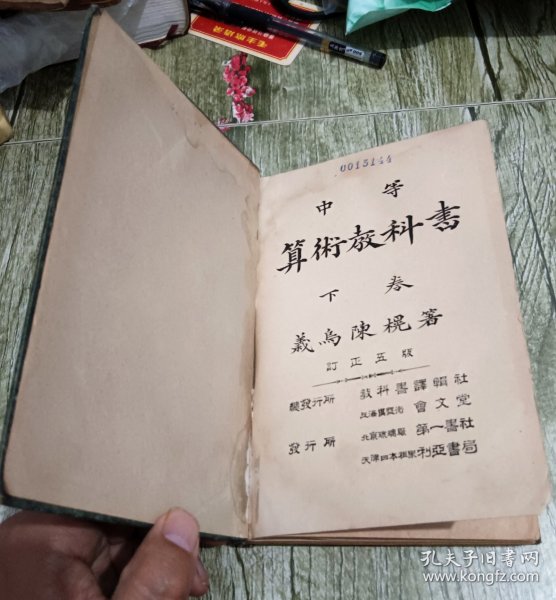 0015144
中等
算術教科書
下卷
義烏陳榥著
訂正五版
總發行所 教科書譯輯社
發行所
上海棋盤街 會文堂
北京琉璃廠 第一書社
天津日本租界 利亞書局
孔夫子旧书网
www.kongfz.com